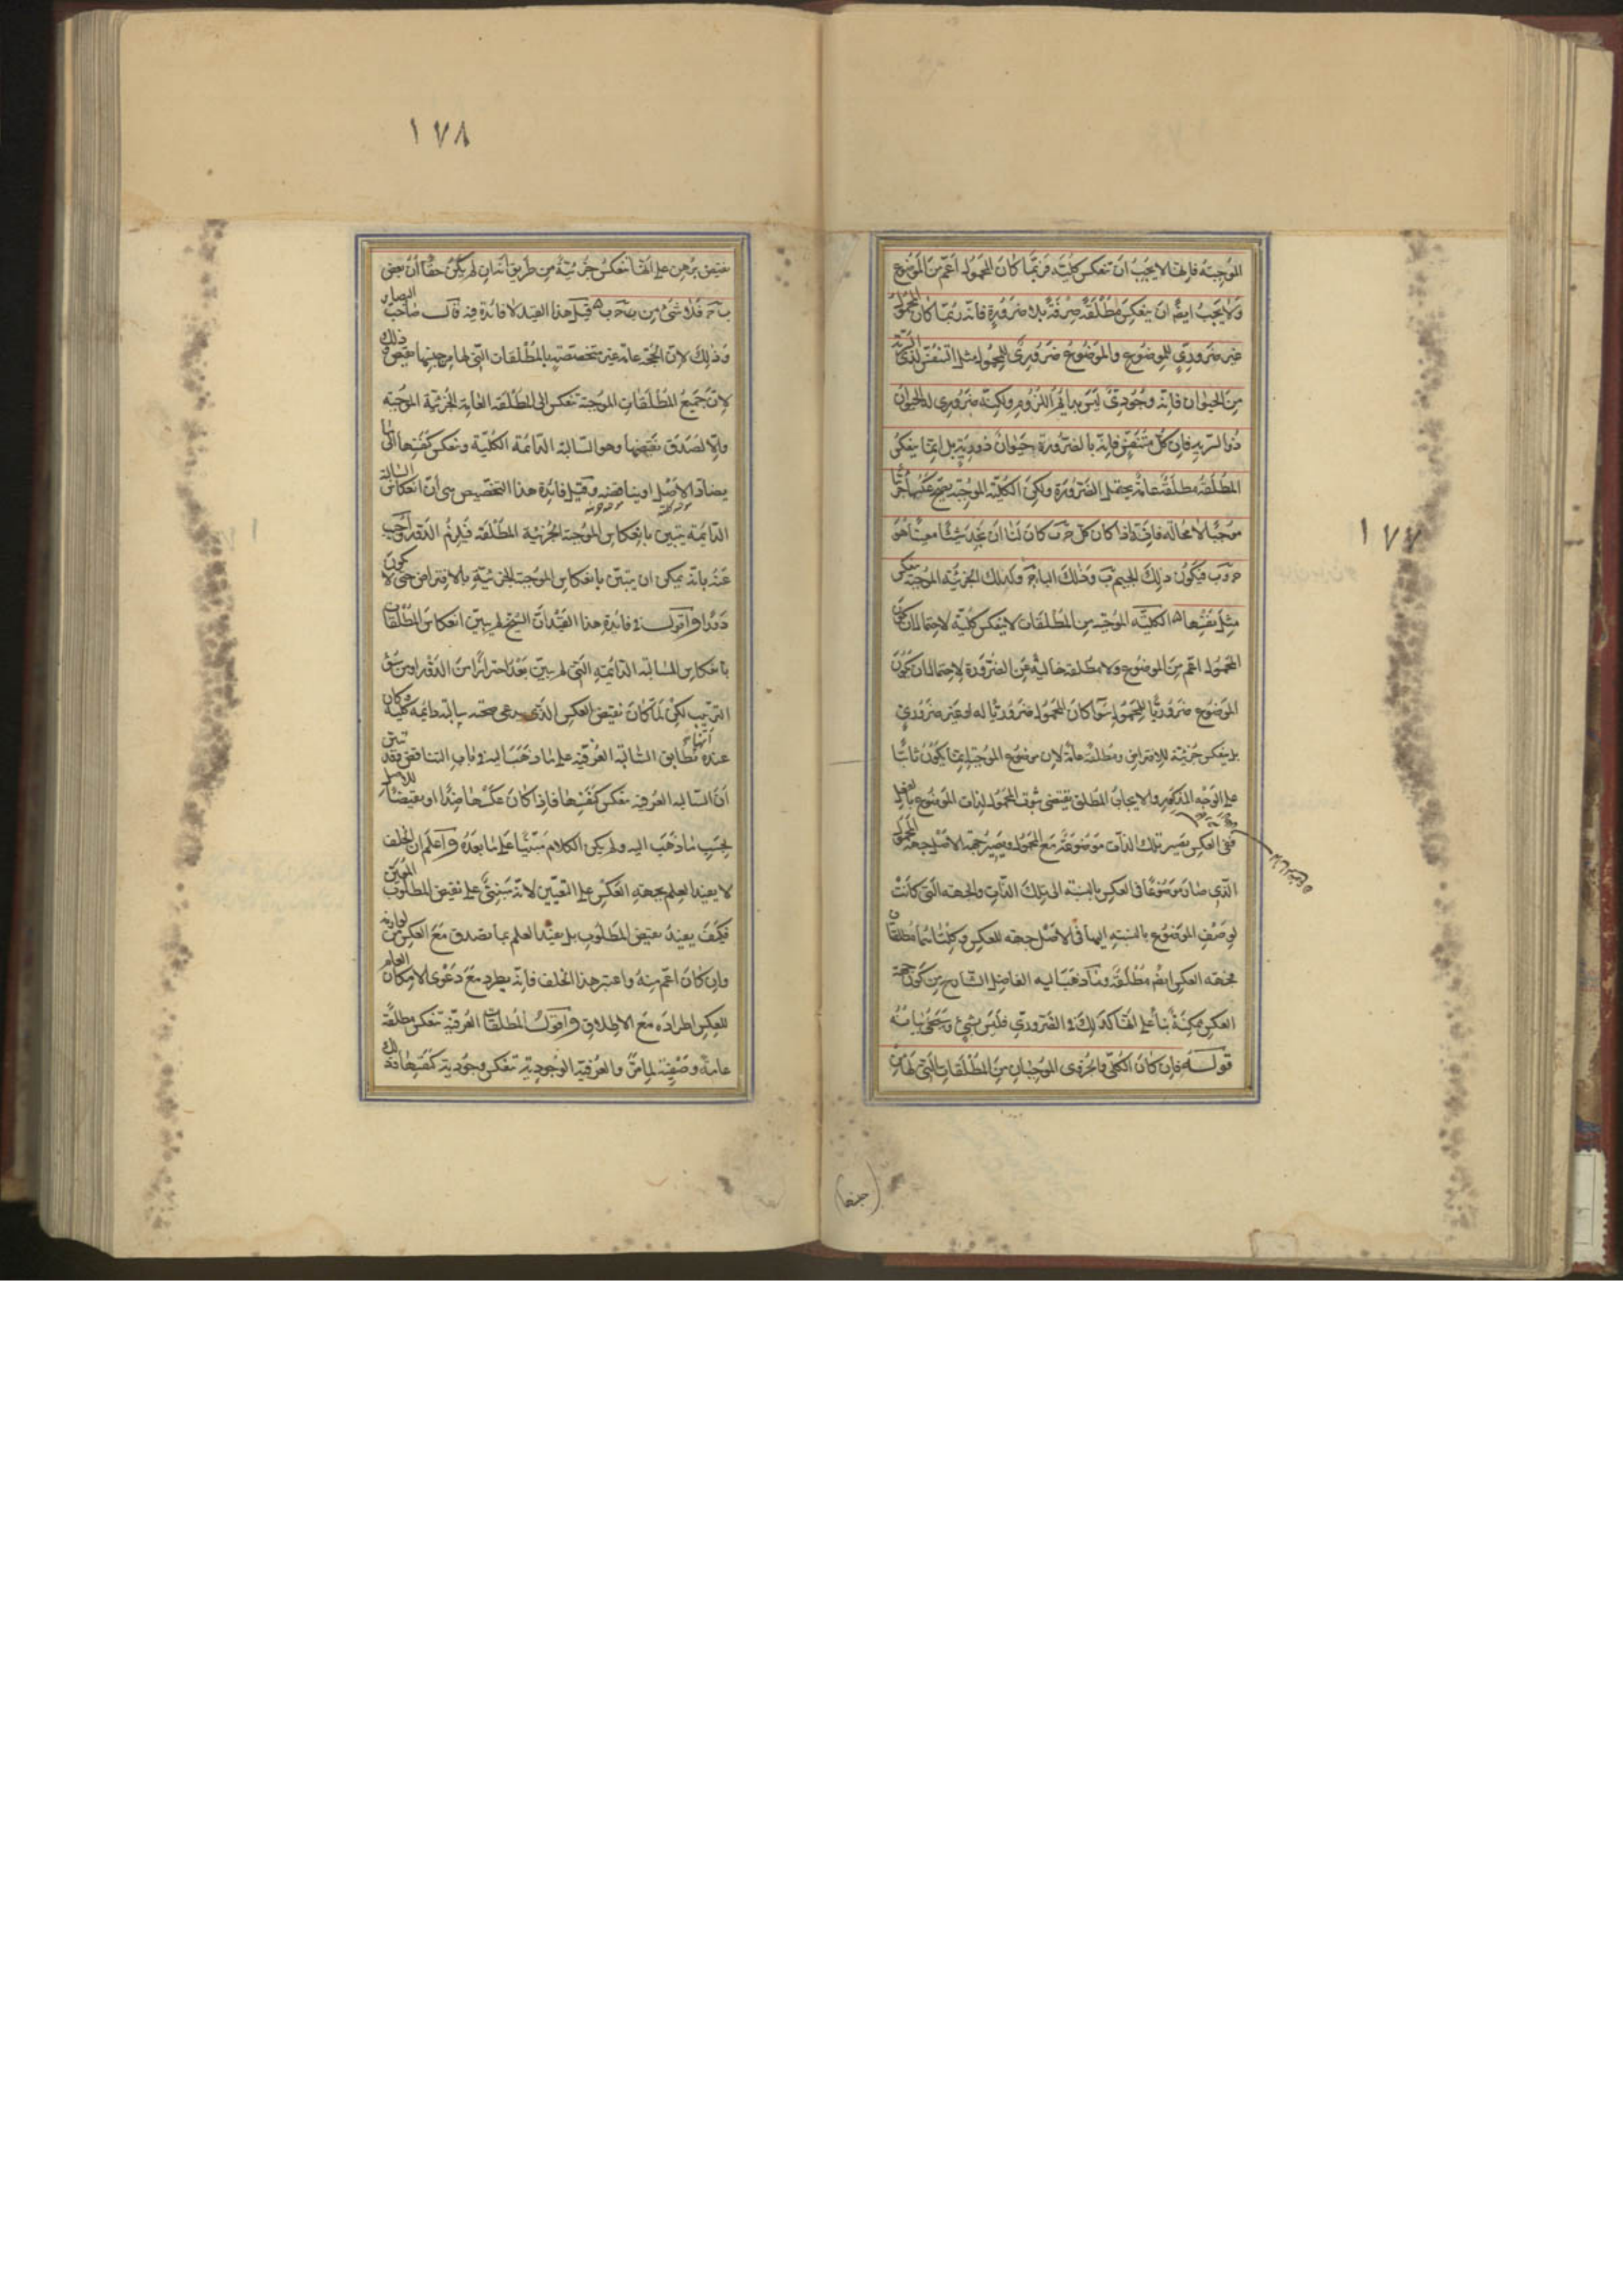 ١٧٧
الموجبة فإنها لا يجب أن تنعكس كلية فربما كان المحمول أعم من الموضوع
ولا يجب ايضا ان ينعكس مطلقة صرفة بلا ضرورة فانه ربما كان المحمول
غير ضروري للموضوع والموضوع ضروري للمحمول مثل التنفس لذي الرية
من الحيوان فانه وجودي ليس بدائم اللزوم ولكنه ضروري له الحيوان
ذو الرية فان كل متنفس فانه بالضرورة حيوان ذو رية بل انما ينعكس
المطلقة مطلقة عامة يحتمل الضرورة ولكن الكلية الموجبة يصح عكسها جزئيا
موجبا لا محالة فانه اذا كان كل ج ب كان لنا ان نجد شيئا معينا هو
ج وب فيكون ذلك الجيم ب وذلك الباء ج وكذلك الجزئية الموجبة ينعكس
مثل نفسها الكلية الموجبة من المطلقات لا ينعكس كلية لاحتمال ان كان
المحمول اعم من الموضوع ولا مطلقة خالية عن الضرورة لاحتمال ان يكون
الموضوع ضروريا للمحمول سوا كان المحمول ضروريا له او غير ضروري
بل ينعكس جزئية للافتراض ومطلقة عامة لان موضوع الموجبة انما يكون ثابتا
على الوجه المذكور والايجاب المطلق يقتضي ثبوت المحمول لذات الموضوع بالفعل
ففي العكس تصير تلك الذات موضوعة مع المحمول ويصير جهة الاصل جهة المحمول
الذي صار موضوعا في العكس بالنسبة الى تلك الذات والجهة التي كانت
لوصف الموضوع بالنسبة اليها في الاصل جهة للعكس وكلتاهما مطلقتان
فجهة العكس ايضا مطلقة وما ذهب اليه الفاضل الشارح من كون جهة
العكس ممكنة بناء على انها كذلك في الضروري فليس بشيء وسيجيء بيانه
قوله فان كان الكلي والجزوي الموجبان من المطلقات التي لها من
(جنها)
١٧٨
نقيض برهن على انها تنعكس جزئية من طريق انه ان لم يكن حقا أن بعض
ب ج فلا شيء من ب ج قيل هذا القيد لا فائدة فيه قال صاحب البصاير
وذلك لان الحجة عامة غير متخصصة بالمطلقات التي لها من جنسها نقيض وذلك
لان جميع المطلقات الموجبة تنعكس الى المطلقة العامة الجزئية الموجبة
والا لصدق نقيضها وهو السالبة الدائمة الكلية وتنعكس كنفسها الى ما
يضاد الاصل او يناقضه وقيل فائدة هذا التخصيص هي أن انعكاس السالبة
الدائمة يتبين بانعكاس الموجبة الجزئية المطلقة فيلزم الدور واجيب
عنه بانه يمكن ان يتبين بانعكاس الموجبة الجزئية بالافتراض حتى لا يكون
دورا واقول في فائدة هذا القيد ان الشيخ لم يبين انعكاس المطلقات
بانعكاس السالبة الدائمة التي لم يبين بعد احترازا من الدور او من سوء
الترتيب لكن لما كان نقيض العكس الذي يدعي صحته سالبة دائمة كلية وكان
عنده انها تطابق السالبة العرفية على ما ذهب اليه في باب التناقض فقد تبين
أن السالبة العرفية تنعكس كنفسها فاذا كان عكسها ضدا او نقيضا للاصل
بحسب ما ذهب اليه ولم يكن الكلام مبنيا على ما بعده واعلم ان الخلف
لا يفيد العلم بجهة العكس على التعيين لانه يبتني على نقيض المطلوب المعين
فكيف يفيد تعيين المطلوب بل يفيد العلم بما يصدق مع العكس من لوازمه
وان كان اعم منه واعتبر هذا الخلف فانه يطرد مع دعوى الامكان العام
للعكس اطراده مع الاطلاق واقول المطلقات العرفية تنعكس مطلقة
عامة وصفية لما مر والعرفية الوجودية تنعكس وجودية كنفسها وذلك